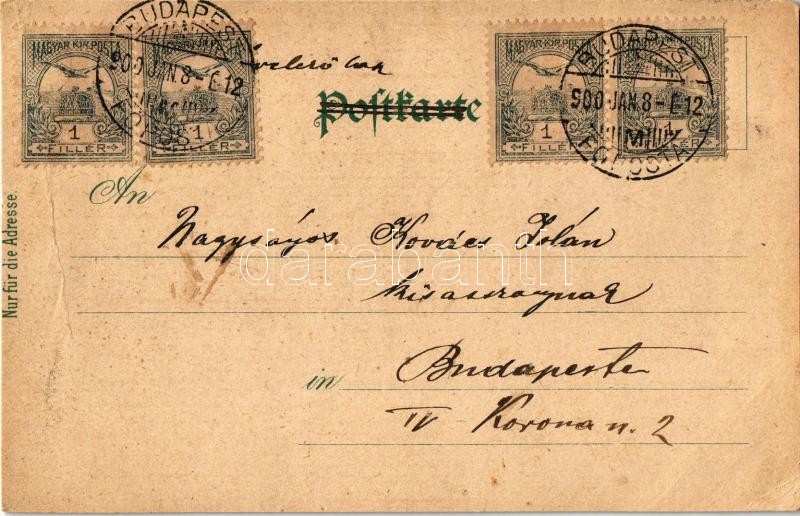 BUDAPEST
900 JAN 8 - É 12
FŐPOSTA
BUDAPEST
900 JAN 8 - É 12
FŐPOSTA
MAGYAR KIR. POSTA MAGYAR KIR. POSTA
1 FILLÉR 1 FILLÉR
MAGYAR KIR. POSTA MAGYAR KIR. POSTA
1 FILLÉR 1 FILLÉR
levelező lap
Postkarte
An
Nagyságos Kovács Jolán
kisasszonynak
in Budapesten
IV Korona u. 2
Nur für die Adresse.
darabanth